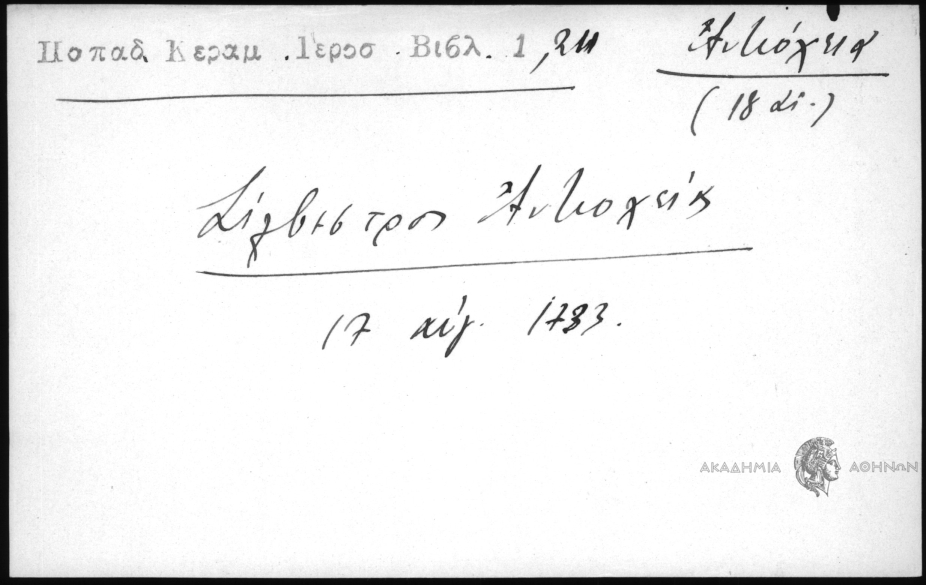 Παπαδ. Κεραμ. Ιεροσ. Βιβλ. 1, 211
Ἀντιόχεια
(18 αἰ.)
Σίλβεστρος Ἀντιοχείας
17 αὐγ. 1733.
ΑΚΑΔΗΜΙΑ ΑΘΗΝΩΝ